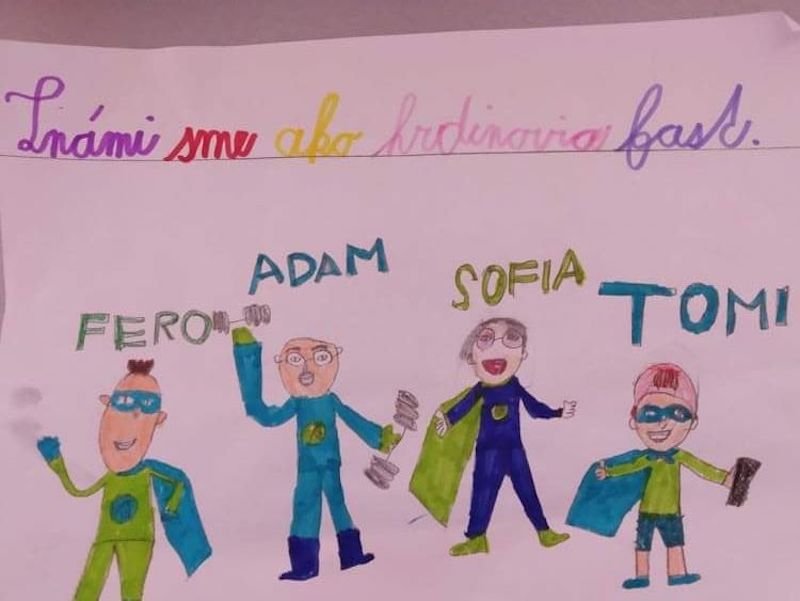 Známi sme ako hrdinovia fast.
FERO
ADAM
SOFIA
TOMI